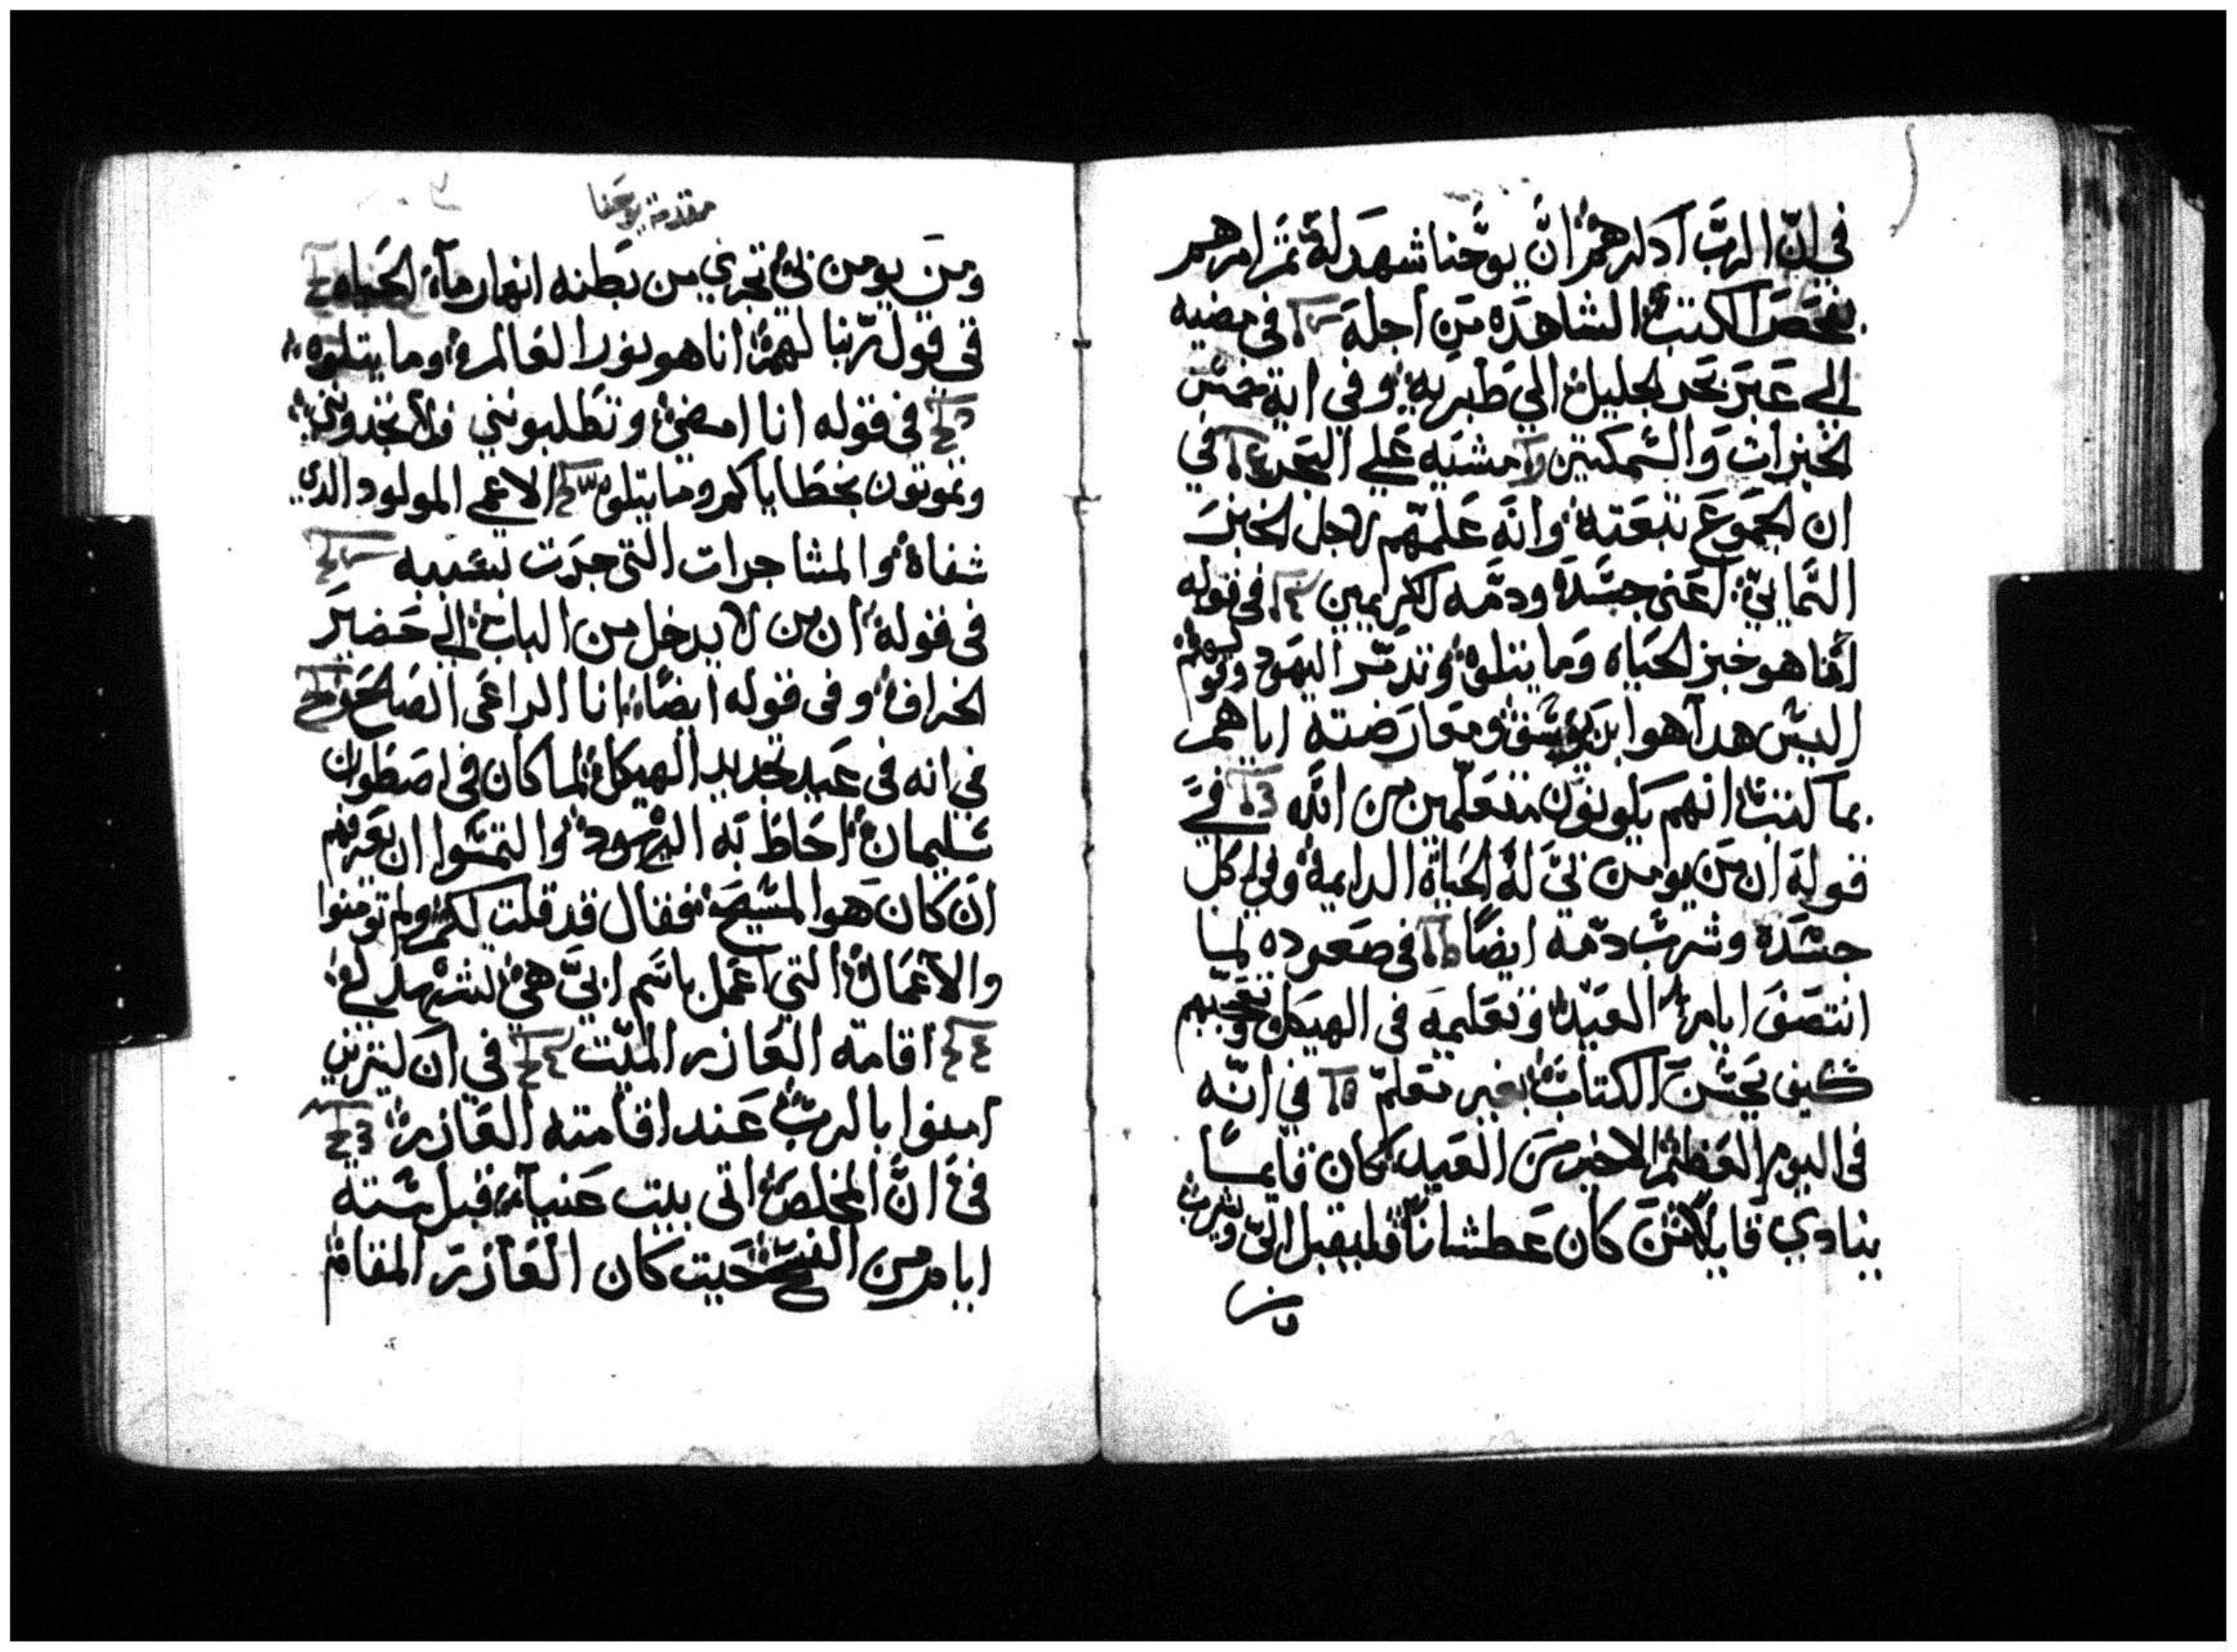 في انّ الربّ اذكرهم انّ يوحنا شهد له ثم امرهم
بفحص الكتب الشاهده من اجله في مضيه
الي عبر بحر الجليل الي طبريه وفي اية خمس
الخبزات والسمكتين مشيه علي البحر في
ان الجموع تبعته وانه علمهم لاجل الخبز
السمايي اعني جسده ودمه الكريمين في قوله
انا هو خبز الحياه وما يتلوه وتدمر اليهود وقولهم
اليس هدا هو ابن يوسف ومعارضته اياهم
بما كتب انهم يكونون متعلمين من الله في
قوله ان من يومن بي له الحياة الدايمة وفي اكل
جسده وشرب دمه ايضًا في صعوده لما
انتصف ايام العيد وتعليمه في الهيكل وتعجبهم
كيف يحسن الكتاب بغير تعلم في انه
في اليوم العظيم الاخير من العيد كان قايمًا
ينادي قايلا من كان عطشانًا فليقبل اليّ ويشرب
ومن
مقدمة يوحنا
ومن يومن بي تجري من بطنه انهار مآء الحياه
في قول ربنا لهم انا هو نور العالم وما يتلوه
في قوله انا امضي وتطلبونني ولا تجدونني
وتموتون بخطاياكم وما يتلوه الاعمي المولود الدي
شفاه والمشاجرات التي جرت بسببه
في قوله ان من لا يدخل من الباب الي حضير
الخراف وفي قوله ايضًا انا الراعي الصالح
في انه في عيد تجديد الهيكل لما كان في اصطوان
سليمان احاط به اليهود والتمسوا ان يعرفهم
ان كان هو المسيح فقال قد قلت لكم ولم تومنوا
والاعمال التي اعمل باسم ابي هي تشهد لي
اقامة العازر الميت في ان كثيرين
امنوا بالرب عند اقامته العازر
في انّ المخلص اتي بيت عنيا قبل ستة
ايام من الفسح حيت كان العازر المقام